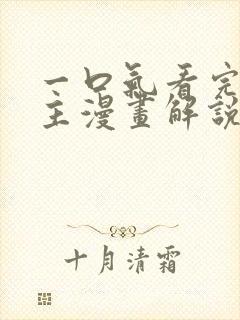 一口氣看完
主漫畫解說
十月清霜